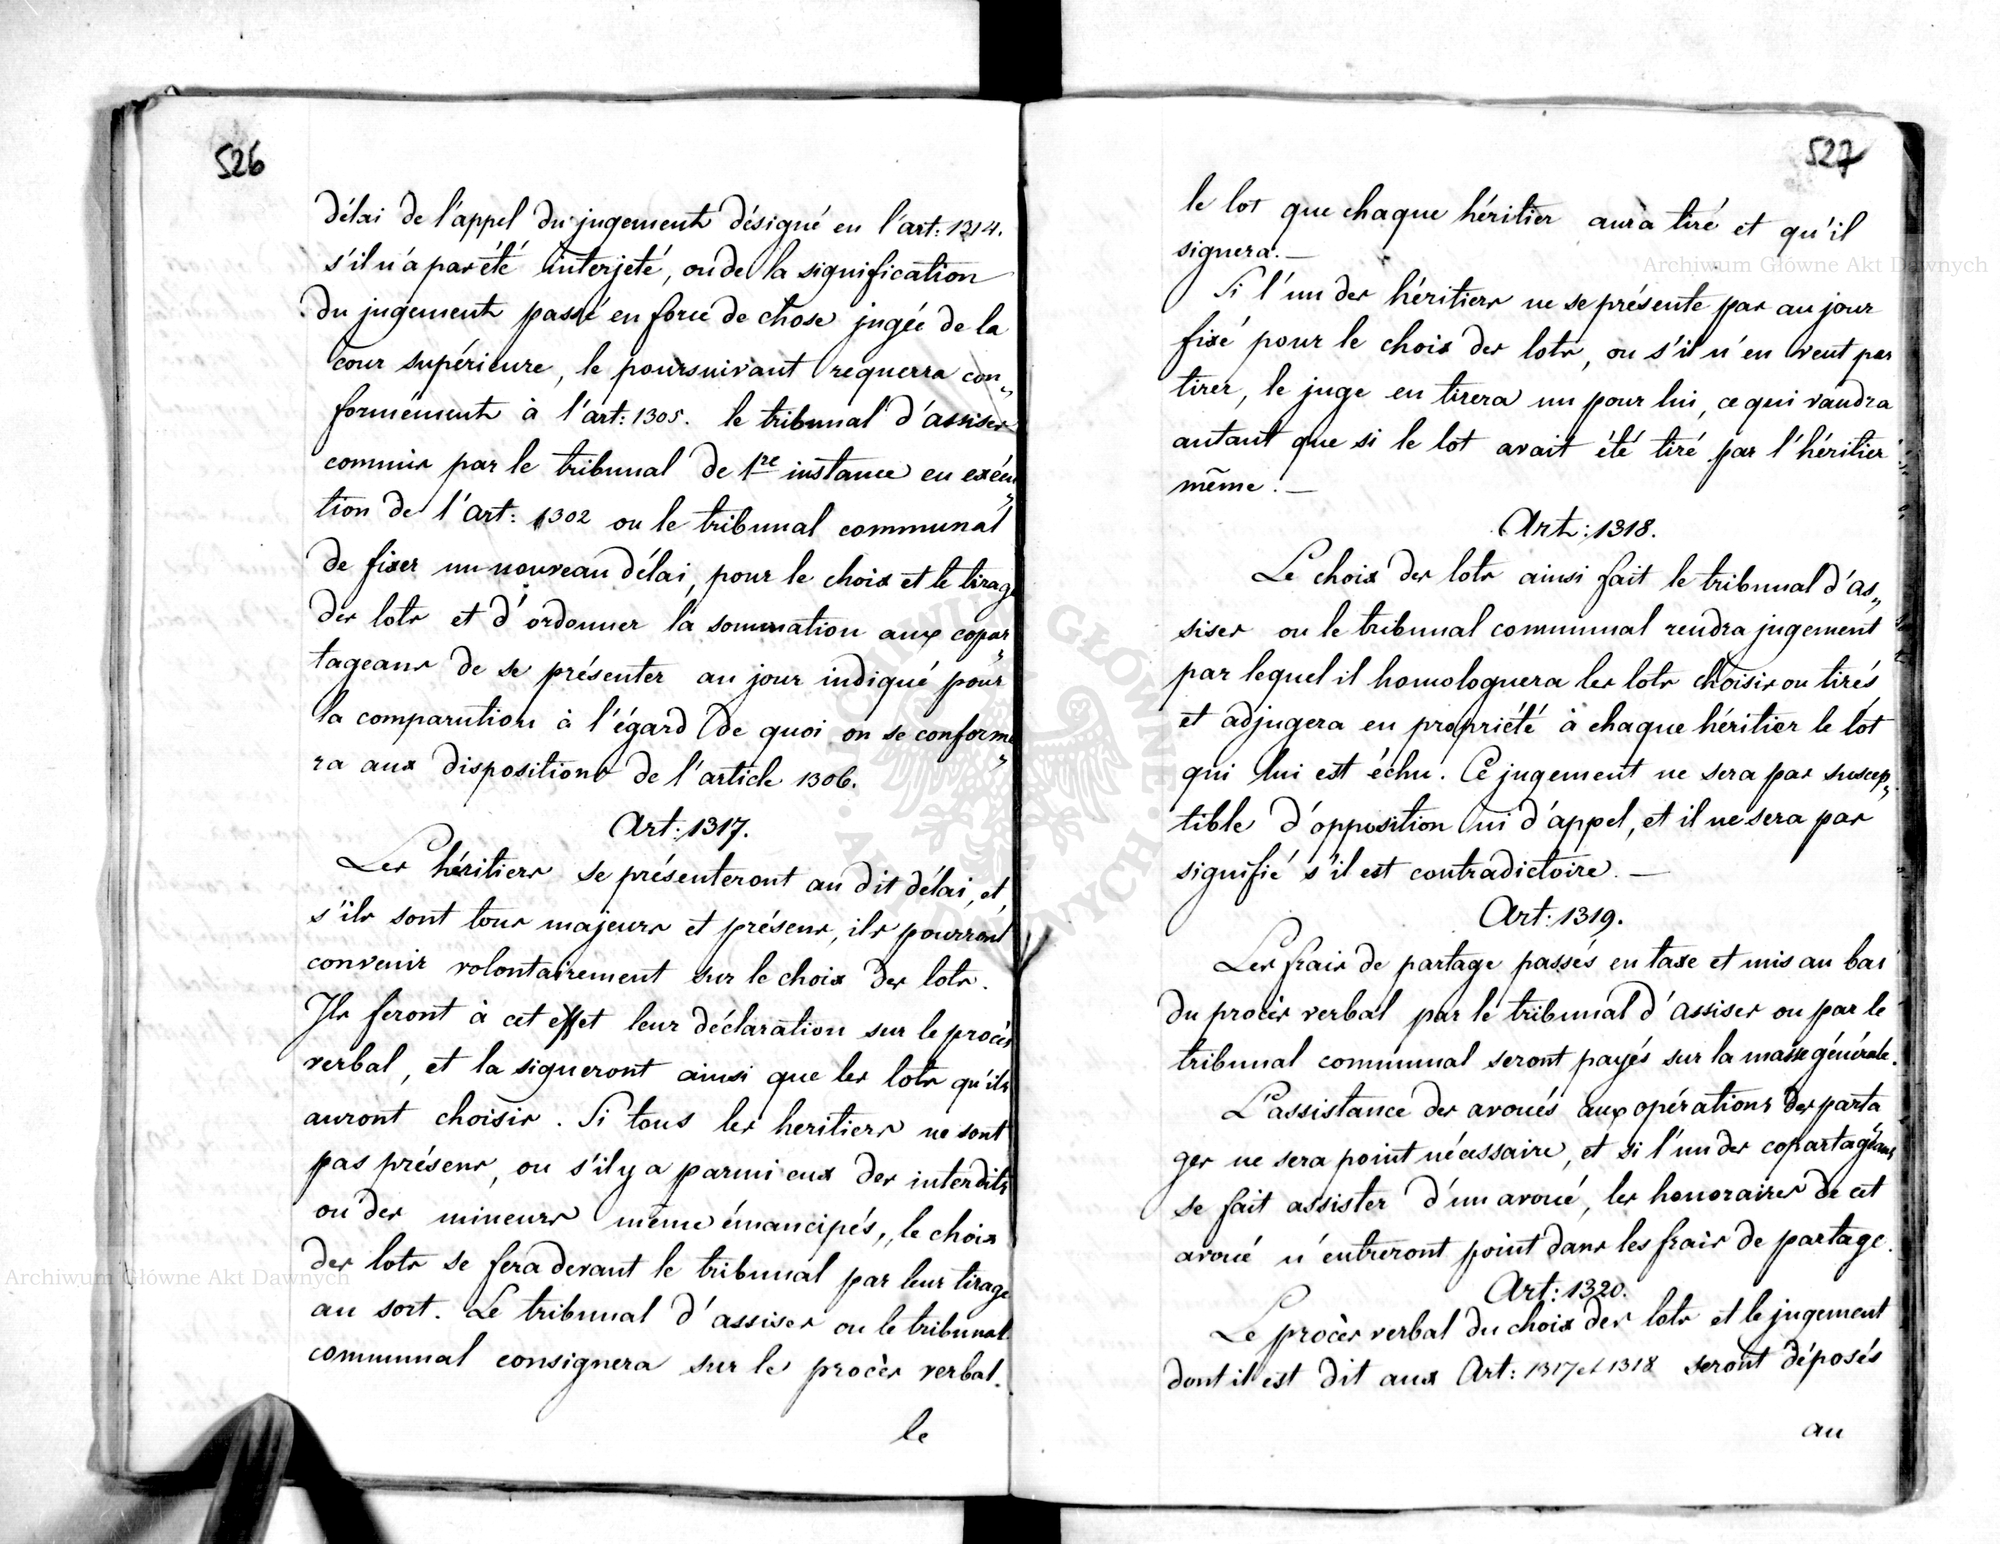 526
délai de l'appel du jugement désigné en l'art: 1214.
s'il n'a pas été interjeté, ou de la signification
du jugement passé en force de chose jugée de la
cour supérieure, le poursuivant requerra con„
formément à l'art: 1305. le tribunal d'assises
commis par le tribunal de 1re instance en exécu„
tion de l'art: 1302 ou le tribunal communal
de fixer un nouveau délai, pour le choix et le tirage
des lots et d'ordonner la sommation aux copar„
tageans de se présenter au jour indiqué pour
la comparution à l'égard de quoi on se conforme„
ra aux dispositions de l'article 1306.
Art: 1317.
Les héritiers se présenteront au dit délai, et,
s'ils sont tous majeurs et présens, ils pourront
convenir volontairement sur le choix des lots.
Ils feront à cet effet leur déclaration sur le procès
verbal, et la signeront ainsi que les lots qu'ils
auront choisis. Si tous les heritiers ne sont
pas présens, ou s'il y a parmi eux des interdits
ou des mineurs même émancipés, le choix
des lots se fera devant le tribunal par leur tirage
au sort. Le tribunal d'assises ou le tribunal
communal consignera sur le procès verbal.
le
527
le lot que chaque héritier aura tiré et qu'il
signera. —
Si l'un des héritiers ne se présente pas au jour
fixé pour le choix des lots, ou s'il n'en veut pas
tirer, le juge en tirera un pour lui, ce qui vaudra
autant que si le lot avait été tiré par l'héritier
même. —
Art: 1318.
Le choix des lots ainsi fait le tribunal d'as„
sises ou le tribunal communal rendra jugement
par lequel il homologuera les lots choisis ou tirés
et adjugera en propriété à chaque héritier le lot
qui lui est échu. Ce jugement ne sera pas suscep„
tible d'opposition ni d'appel, et il ne sera pas
signifié s'il est contradictoire. —
Art: 1319.
Les frais de partage passés en taxe et mis au bas
du procès verbal par le tribunal d'assises ou par le
tribunal communal seront payés sur la masse générale.
L'assistance des avoués aux opérations des parta„
ges ne sera point nécessaire, et si l'un des copartageans
se fait assister d'un avoué, les honoraires de cet
avoué n'entreront point dans les frais de partage.
Art: 1320.
Le procès verbal du choix des lots et le jugement
dont il est dit aux Art: 1317 et 1318 seront déposés
au
Archiwum Główne Akt Dawnych
Archiwum Główne Akt Dawnych
ARCHIWUM GŁÓWNE · AKT DAWNYCH ·